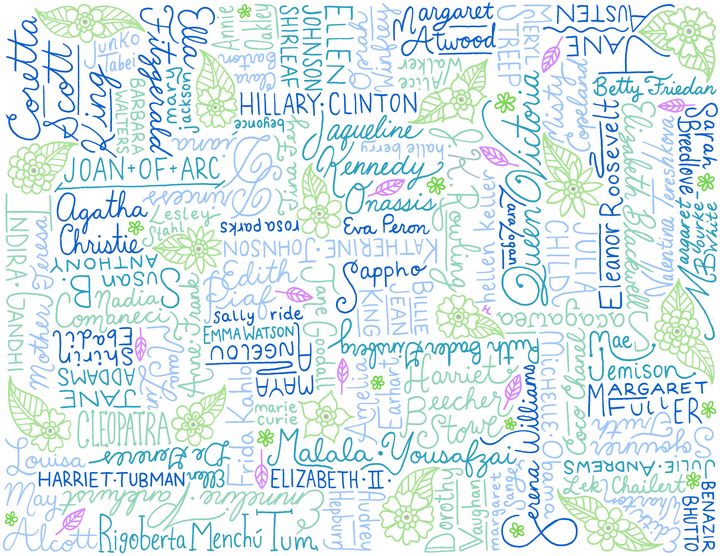 Coretta
Scott
King
Junko
Tabei
BARBARA
WATERS
Ella
Fitzgerald
mary
jackson
Annie
Oakley
Clara
Barton
ELLEN
JOHNSON
SHIRLEAF
Oprah
Winfrey
Margaret
Atwood
Alice
Walker
MERYL
STREEP
JANE
AUSTEN
Misty
Copeland
Betty Friedan
HILLARY·CLINTON
beyonce
Jaqueline
Kennedy
Onassis
halle berry
J.K. Rowling
Queen Victoria
Eleanor Roosevelt
Elizabeth Blackwell
Valentina Tereshkova
Sarah
Breedlove
Margaret
Bourke
White
JOAN+OF+ARC
Princess
Diana
Agatha
Christie
Lesley
Stahl
rosa parks
Eva Peron
KATHERINE JOHNSON
hellen keller
Zara Zogan
JULIA
CHILD
INDIRA·GANDHI
Mother Teresa
Susan B.
ANTHONY
Nadia
Comaneci
Anne Frank
Edith
Piaf
Jane Goodall
Sappho
BILLIE
JEAN
KING
Sacagawea
sally ride
EMMA WATSON
MAYA
ANGELOU
Ruth Bader Ginsberg
Shirin
Ebadi
Maya Lin
JANE
ADDAMS
CLEOPATRA
Frida Kahlo
marie
curie
Amelia
Earhart
Harriet
Beecher
Stowe
Serena Williams
MICHELLE Obama
Coco Chanel
Mae
Jemison
MARGARET
FULLER
Sojourner
Truth
Louisa
May
Alcott
Ellen
DeGeneres
HARRIET·TUBMAN
Emmeline·Pankhurst
Rigoberta Menchú Tum
Malala·Yousafzai
ELIZABETH·II·
Audrey
Hepburn
Dorothy
Vaughan
margaret
sanger
JULIE·ANDREWS
Lek Chailert
Edith
Wharton
BENAZIR
BHUTTO